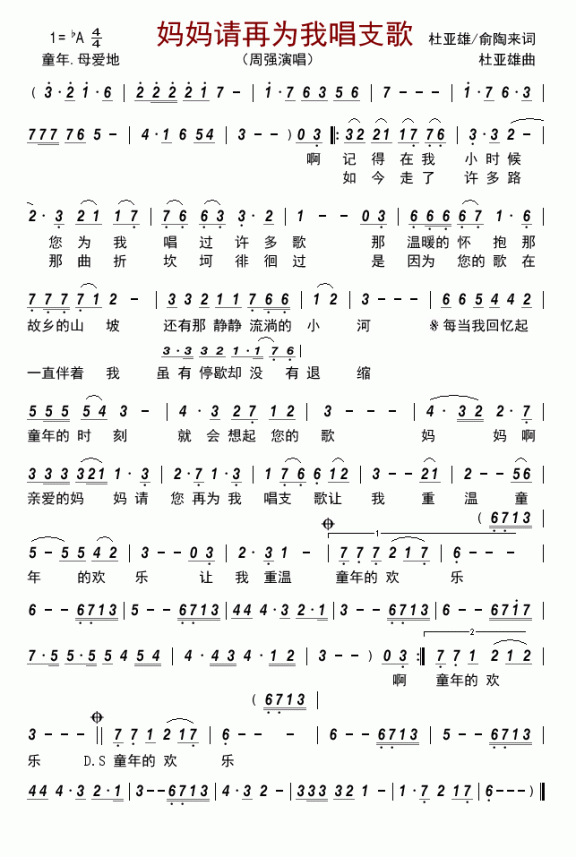 妈妈请再为我唱支歌
1= ♭A 4/4
杜亚雄/俞陶来词
童年.母爱地
（周强演唱）
杜亚雄曲
( 3·2 1·6 | 2 2 2 2 1 7 - | 1·7 6 3 5 6 | 7 - - - | 1·7 6·3 |
7 7 7 7 6 5 - | 4·1 6 5 4 | 3 - - ) 0 3 ‖: 3 2 2 1 1 7 7 6 | 3·3 2 - |
啊 记 得 在 我 小 时 候
如 今 走 了 许 多 路
2·3 2 1 1 7 | 7 6 6 3 3·2 | 1 - - 0 3 | 6 6 6 6 7 1·6 |
您 为 我 唱 过 许 多 歌 那 温暖的 怀 抱 那
那 曲 折 坎 坷 徘 徊 过 是 因为 您的 歌 在
7 7 7 7 1 2 - | 3 3 2 1 1 7 6 6 | 1 2 - | 3 - - - | 6 6 5 4 4 2 |
故乡的 山 坡 还有那 静静 流淌的 小 河 每当我回忆起
3·3 3 2 1·1 7 6 |
一直伴着 我 虽 有 停歇却 没 有 退 缩
5 5 5 5 4 3 - | 4·3 2 7 1 2 | 3 - - - | 4·3 2 2·7 |
童年的 时 刻 就 会 想起 您的 歌 妈 妈 啊
3 3 3 3 2 1 1·3 | 2·7 1·3 | 1 7 6 6 1 2 | 3 - - 2 1 | 2 - - 5 6 |
亲爱的妈 妈 请 您 再为 我 唱支 歌让 我 重 温 童
( 6 7 1 3 |
1
5 - 5 5 5 4 2 | 3 - - 0 3 | 2·3 1 - | 7 7 7 2 1 7 | 6 - - - |
年 的欢 乐 让 我 重温 童年的 欢 乐
6 - - 6 7 1 3 | 5 - - 6 7 1 3 | 4 4 4·3 2·1 | 3 - - 6 7 1 3 | 6 - - 6 7 1 7 |
7·5 5·5 5 4 5 4 | 4·4 3 4·1 2 | 3 - - ) 0 3 :‖ 7 7 1 2 1 2 |
2
啊 童年的 欢
( 6 7 1 3 |
3 - - - ‖ 7 7 1 2 1 7 | 6 - - - | 6 - - 6 7 1 3 | 5 - - 6 7 1 3 |
乐 D.S 童年的 欢 乐
4 4 4·3 2·1 | 3 - - 6 7 1 3 | 4·3 4·3 | 3 3 3 2·1 | 1·7 2 1 7 | 6 - - - ‖